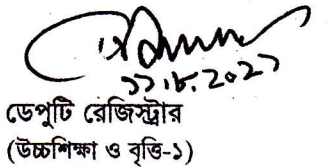 ১১.৮.২০২১
ডেপুটি রেজিস্ট্রার
(উচ্চশিক্ষা ও বৃত্তি-১)